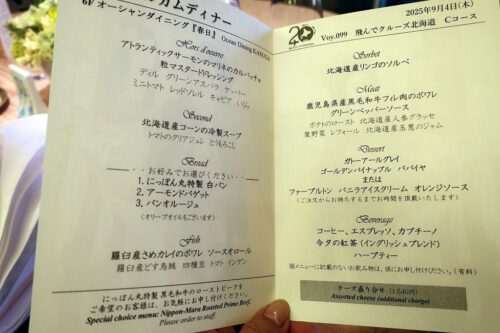 カムディナー
6F オーシャンダイニング『春日』 Ocean Dining KASUGA
Hors d'oeuvre
アトランティックサーモンのマリネのカルパッチョ
粒マスタードドレッシング
ディル グリーンアスパラ ケッパー
ミニトマト レッドソレル キャビア いくら
Second
北海道産コーンの冷製スープ
トマトのクリアジュレ とうもろこし
Bread
--- お好みでお選びください ---
1. にっぽん丸特製 白パン
2. アーモンドバゲット
3. パンオルージュ
(オリーブオイルもございます)
Fish
羅臼産さめカレイのポワレ ソースオロール
羅臼産どす烏賊 四種豆 トマト インゲン
にっぽん丸特製 黒毛和牛のローストビーフを
ご希望のお客様は、お気軽にお申し付けください。
Special choice menu: Nippon-Maru Roasted Prime Beef.
Please order to staff.
20
2025年9月4日(木)
Voy.099 飛んでクルーズ北海道 Cコース
Sorbet
北海道産リンゴのソルベ
Meat
鹿児島県産黒毛和牛フィレ肉のポワレ
グリーンペッパーソース
ポテトのロースト 北海道産人参グラッセ
萱野菜 レフォール 北海道産玉葱のジャム
Dessert
ガトーアールグレイ
ゴールデンパイナップル パパイヤ
または
ファーブルトン バニラアイスクリーム オレンジソース
(ご注文からお持ちするまでお時間を頂戴いたします)
Beverage
コーヒー、エスプレッソ、カプチーノ
今夕の紅茶 (イングリッシュブレンド)
ハーブティー
※メニューに記載のないお飲物は、係にお申し付けください。(有料)
チーズ盛り合せ (1,540円)
Assorted cheese (additional charge)